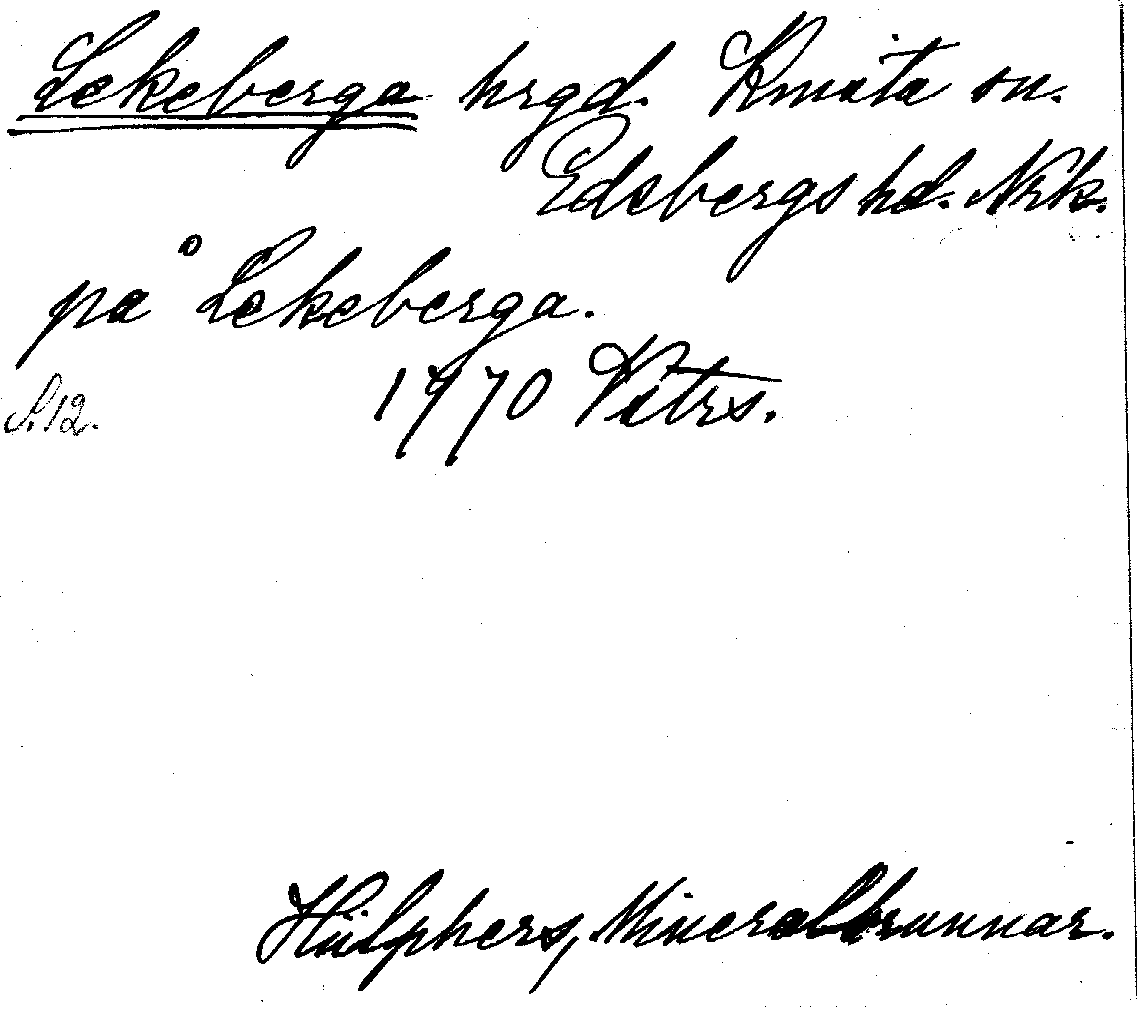 Lekeberga hrgd. Knista sn.
Edsbergs hd. Nrk.
på Lekeberga.
S. 12. 1770 Vitrs.
Hülphers, Mineralbrunnar.